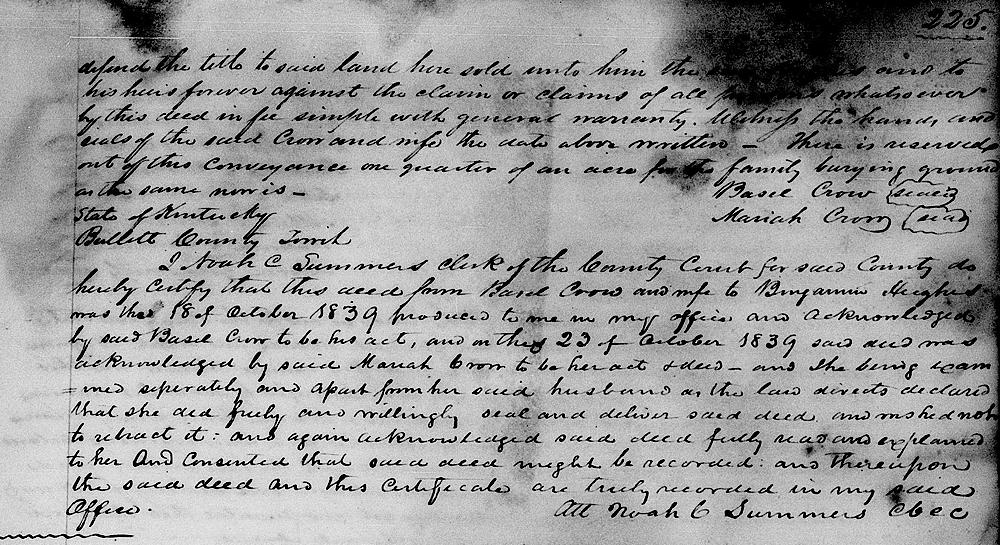 225.
defend the title to said land here sold unto him the and to
his heirs forever against the claim or claims of all whatsoever
by this deed in fee simple with general warranty. Witness the hands and
seals of the said Crow and wife the date above written – There is reserved
out of this conveyance one quarter of an acre for the family burying ground
as the same now is – Basel Crow (seal)
State of Kentucky Mariah Crow (seal)
Bullett County Towit
I Noah C Summers Clerk of the County Court for said County do
hereby Certify that this deed from Basel Crow and wife to Benjamin Hughes
was the 18 of October 1839 produced to me in my office and acknowledged
by said Basel Crow to be his act, and on the 23 of October 1839 said deed was
acknowledged by said Mariah Crow to be her act & deed – and she being exam
=ined seperately and apart from her said husband as the law directs declared
that she did freely and willingly seal and deliver said deed and wished not
to retract it: and again acknowledged said deed fully read and explained
to her And Consented that said deed might be recorded: and thereupon
the said deed and this Certificate are truly recorded in my said
Office. Att Noah C Summers CBCC